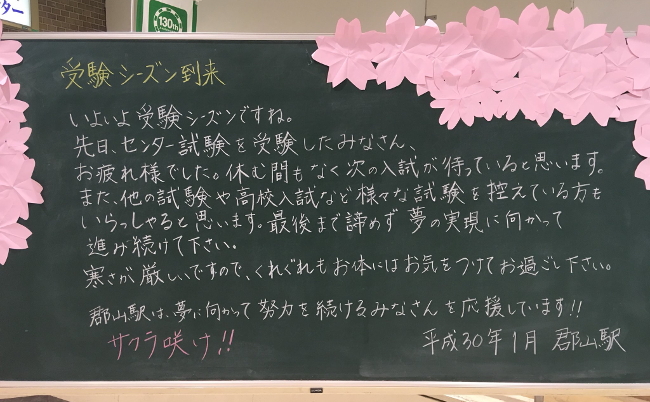 ター
130th
受験シーズン到来
いよいよ受験シーズンですね。
先日、センター試験を受験したみなさん、
お疲れ様でした。休む間もなく次の入試が待っていると思います。
また、他の試験や高校入試など様々な試験を控えている方も
いらっしゃると思います。最後まで諦めず夢の実現に向かって
進み続けて下さい。
寒さが厳しいですので、くれぐれもお体にはお気をつけてお過ごし下さい。
郡山駅は、夢に向かって努力を続けるみなさんを応援しています!!
サクラ咲け!!
平成30年1月 郡山駅